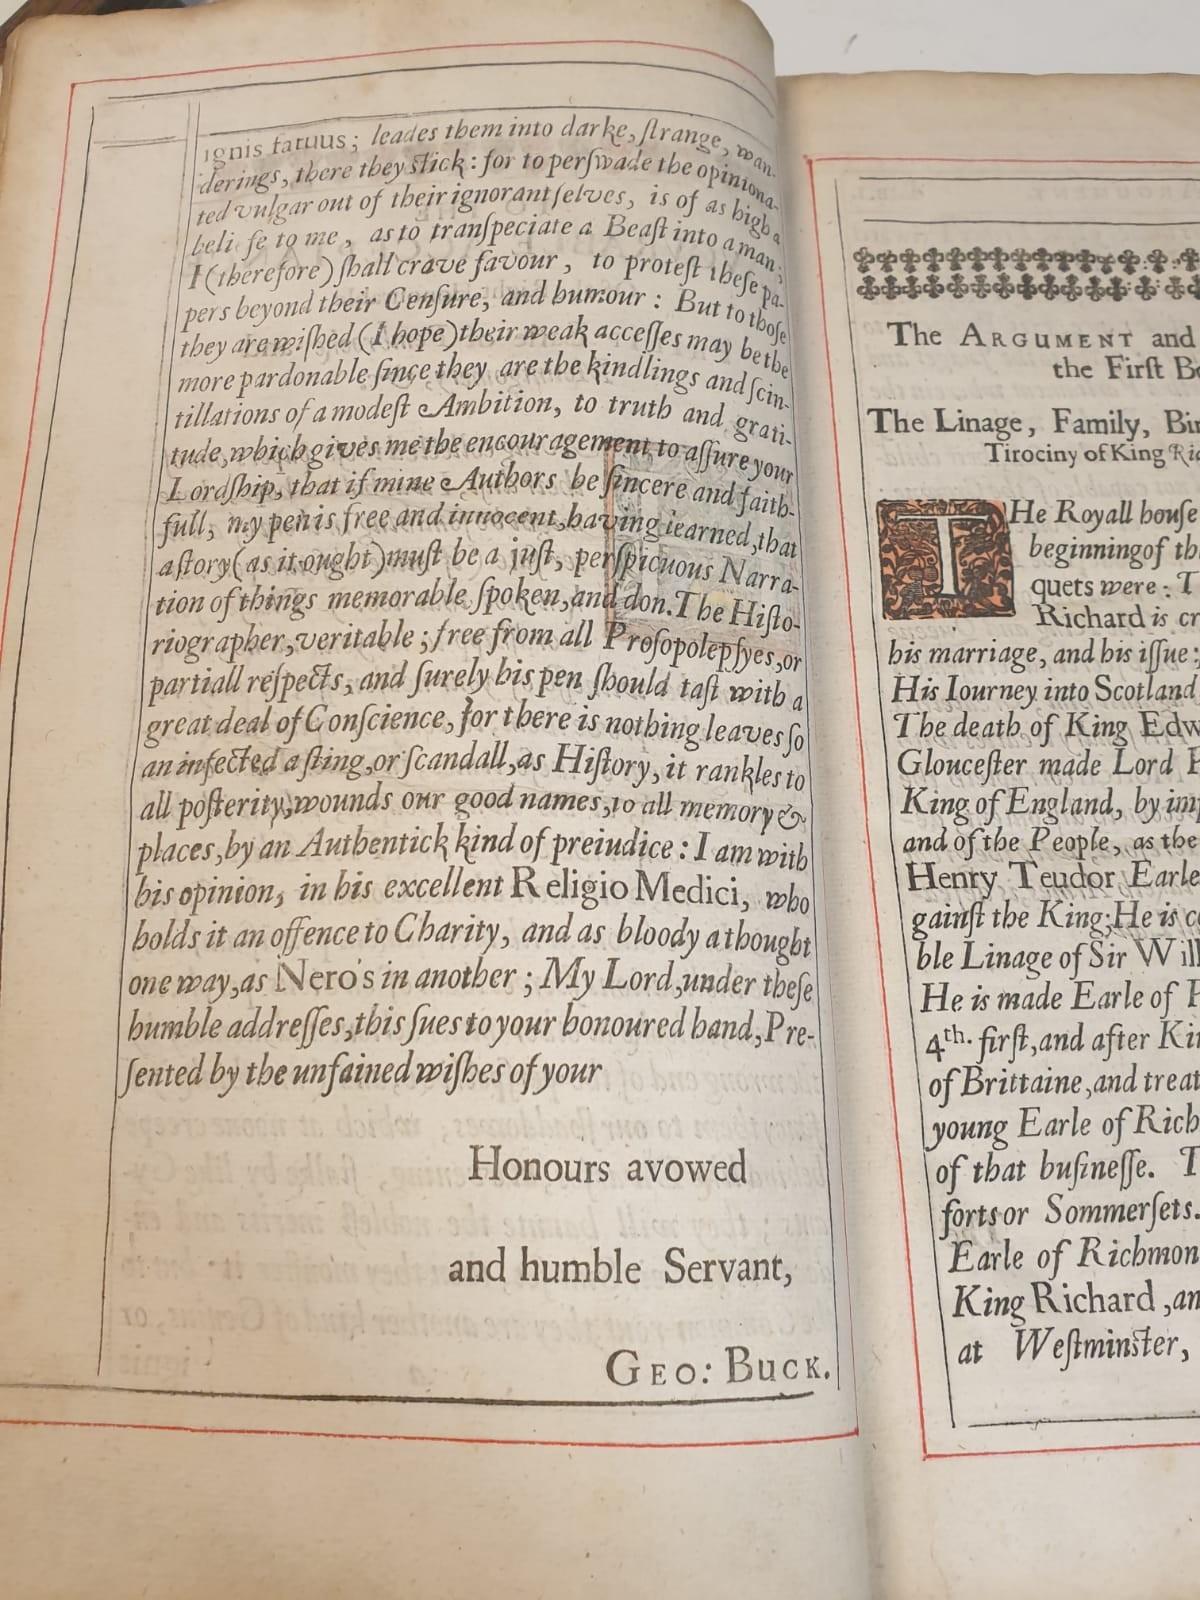 ignis fatuus; leades them into darke, ſtrange, wan-
derings, there they ſtick: for to perſwade the opiniona-
ted vulgar out of their ignorant ſelves, is of as high a
beliefe to me, as to tranſpeciate a Beaſt into a man;
I (therefore) ſhall crave favour, to proteſt theſe pa-
pers beyond their Cenſure, and humour: But to thoſe
they are wiſhed (I hope) their weak acceſſes may be the
more pardonable ſince they are the kindlings and ſcin-
tillations of a modeſt Ambition, to truth and grati-
tude, which gives me the encouragement to aſſure your
Lordſhip, that if mine Authors be ſincere and faith-
full, my pen is free and innocent, having learned, that
a ſtory (as it ought) muſt be a juſt, perſpicuous Narra-
tion of things memorable ſpoken, and don. The Hiſto-
riographer, veritable; free from all Proſopolepſyes, or
partiall reſpects, and ſurely his pen ſhould taſt with a
great deal of Conſcience, for there is nothing leaves ſo
an infected a ſting, or ſcandall, as Hiſtory, it rankles to
all poſterity, wounds our good names, to all memory &
places, by an Authentick kind of preiudice: I am with
his opinion, in his excellent Religio Medici, who
holds it an offence to Charity, and as bloody a thought
one way, as Nero's in another; My Lord, under theſe
humble addreſſes, this ſues to your honoured hand, Pre-
ſented by the unfained wiſhes of your
Honours avowed
and humble Servant,
GEO: BUCK.
The ARGUMENT and
the Firſt
The Linage, Family,
Tirociny of King
THe Royall houſe
beginning of
quets were:
Richard is
his marriage, and his iſſue;
His Iourney into Scotland
The death of King
Glouceſter made Lord
King of England, by
and of the People, as the
Henry Teudor Earle
gainſt the King; He is
ble Linage of Sir
He is made Earle of
4th. firſt, and after
of Brittaine, and
young Earle of
of that buſineſſe.
forts or Sommerſets.
Earle of
King Richard,
at Weſtminſter,